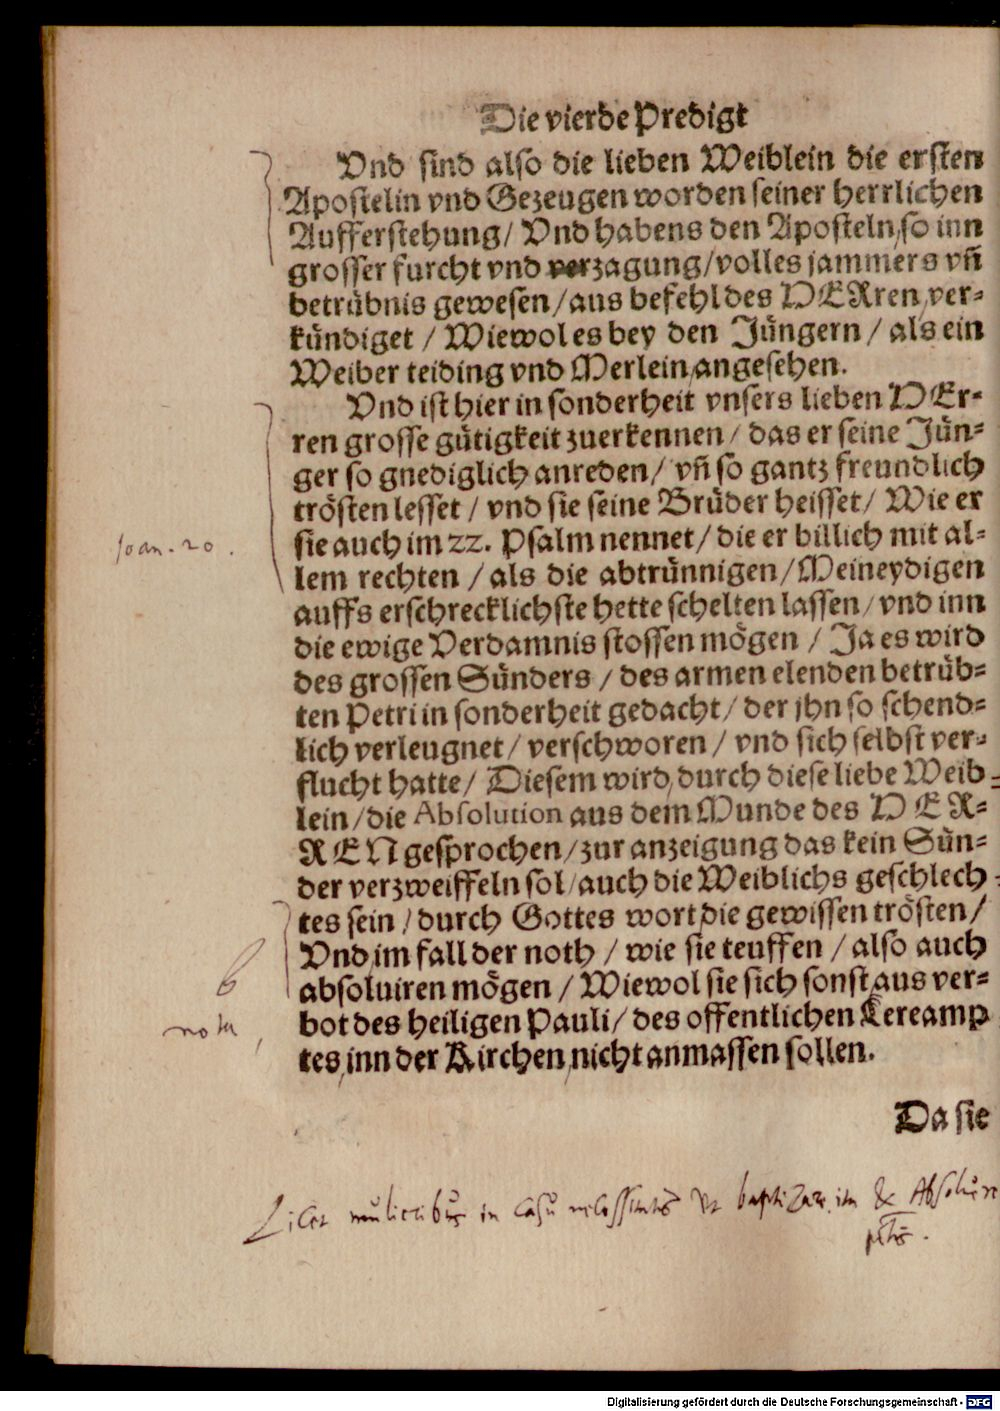 Die vierde Predigt
Vnd sind also die lieben Weiblein die ersten
Apostelin vnd Gezeugen worden seiner herrlichen
Aufferstehung/ Vnd habens den Aposteln, so inn
grosser furcht vnd verzagung/ volles jammers vñ
betrübnis gewesen/ aus befehl des HERren, ver-
kündiget / Wiewol es bey den Jüngern / als ein
Weiber teiding vnd Merlein, angesehen.
Vnd ist hier in sonderheit vnsers lieben HEr-
ren grosse gütigkeit zuerkennen / das er seine Jün-
ger so gnediglich anreden / vñ so gantz freundlich
trösten lesset / vnd sie seine Brüder heisset/ Wie er
Joan. 20.
sie auch im 22. Psalm nennet/ die er billich mit al-
lem rechten / als die abtrünnigen/ Meineydigen
auffs erschrecklichste hette schelten lassen / vnd inn
die ewige Verdamnis stossen mögen / Ja es wird
des grossen Sünders / des armen elenden betrüb-
ten Petri in sonderheit gedacht/ der jhn so schend-
lich verleugnet/ verschworen / vnd sich selbst ver-
flucht hatte/ Diesem wird, durch diese liebe Weib-
lein/ die Absolution aus dem Munde des HER-
REN gesprochen/ zur anzeigung das kein Sün-
der verzweiffeln sol/ auch die Weiblichs geschlech-
tes sein / durch Gottes wort, die gewissen trösten/
Vnd, im fall der noth / wie sie teuffen / also auch
absoluiren mögen / Wiewol sie sich sonst, aus ver-
6
nota
bot des heiligen Pauli/ des offentlichen Lereamp
tes, inn der Kirchen, nicht anmassen sollen.
Da sie
Licet mulieribus in casu necessitatis ut baptizare ita & Absoluere